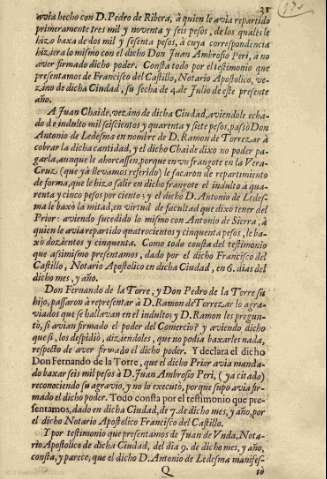 31
avia hecho con D. Pedro de Ribera, à quien le avia repartido
primeramente tres mil y noventa y seis pesos, de los quales le
hizo baxa de dos mil y sesenta pesos, à cuya correspondencia
hiziera lo mismo con el dicho Don Juan Ambrosio Peri, à no
aver firmado dicho poder. Consta todo por el testimonio que
presentamos de Francisco del Castillo, Notario Apostolico, ve-
zino de dicha Ciudad, su fecha de 4. de Julio de este presente
año.
A Juan Chaide, vezino de dicha Ciudad, aviendole echa-
do de indulto mil seiscientos y quarenta y siete pesos, passò Don
Antonio de Ledesma en nombre de D. Ramon de Torrezar à
cobrar la dicha cantidad, y el Chaide dixo no poder pa-
garla, aunque le ahorcassen, porque en un frangote en la Vera-
Cruz (que yà llevamos referido) le sacaron de repartimiento
de forma, que le hizo salir en dicho frangote el indulto à qua-
renta y cinco pesos por ciento; y el dicho D. Antonio de Ledes-
ma le baxò la mitad, en virtud de facultad que dixo tener del
Prior: aviendo sucedido lo mismo con Antonio de Sierra, à
quien le avia repartido quatrocientos y cinquenta pesos, le ba-
xò dozientos y cinquenta. Como todo consta del testimonio
que assimismo presentamos, dado por el dicho Francisco del
Castillo, Notario Apostolico en dicha Ciudad, en 6. dias del
dicho mes, y año.
Don Fernando de la Torre, y Don Pedro de la Torre su
hijo, passaron à representar à D. Ramon de Torrezar lo agra-
viados que se hallavan en el indulto; y D. Ramon les pregun-
tò, si avian firmado el poder del Comercio? y aviendo dicho
que si, los despidiò, diziendoles, que no podia baxarles nada,
respecto de aver firmado el dicho poder. Y declara el dicho
Don Fernando de la Torre, que el dicho Prior avia manda-
do baxar seis mil pesos à D. Juan Ambrosio Peri, (ya citado)
reconociendo su agravio, y no lo executò, porque supo avia fir-
mado el dicho poder. Todo consta por el testimonio que pre-
sentamos, dado en dicha Ciudad, de 7. de dicho mes, y año, por
el dicho Notario Apostolico Francisco del Castillo.
Y por testimonio que presentamos de Juan de Vnda, Nota-
rio Apostolico de dicha Ciudad, del dia 9. de dicho mes, y año,
consta, y parece, que el dicho D. Antonio de Ledesma manifes-
Q